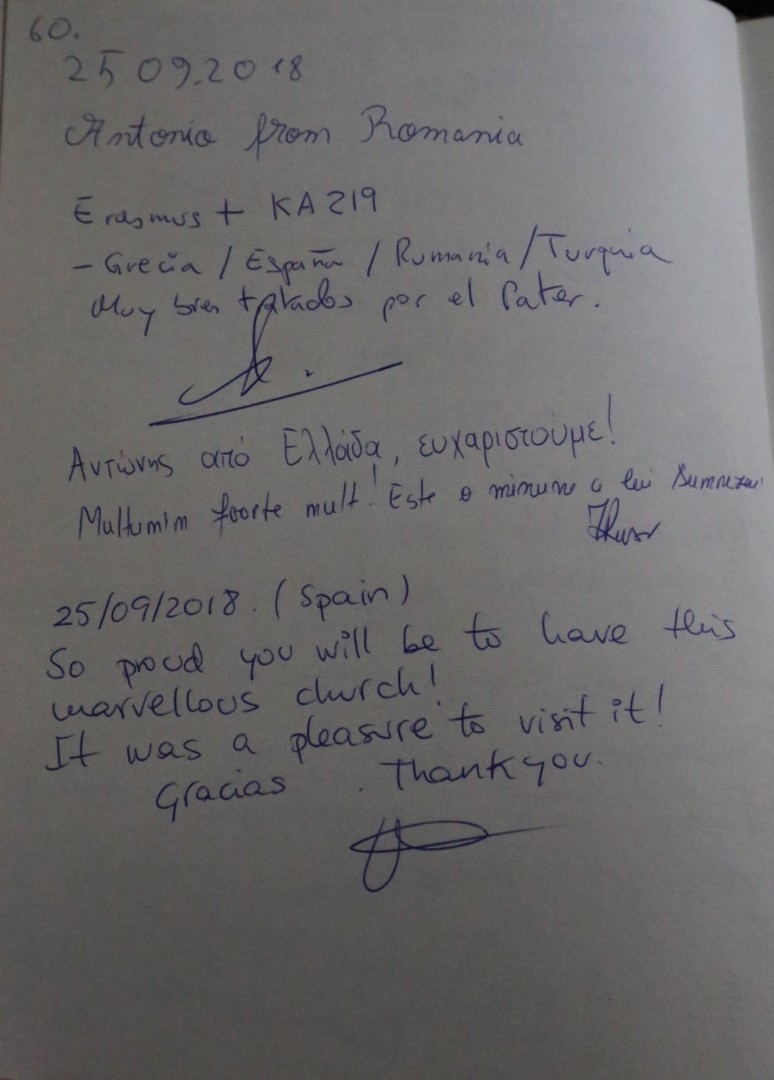 60.
25 09.2018
Antonia from Romania
Erasmus + KA219
- Grecia / España / Rumania / Turquia
Muy bien tratados por el Pater.
Αντώνης από Ελλάδα, ευχαριστούμε!
Multumim foarte mult! Este o minune a lui Dumnezeu
25/09/2018. (Spain)
So proud you will be to have this
marvellous church!
It was a pleasure to visit it!
Gracias . Thank you.